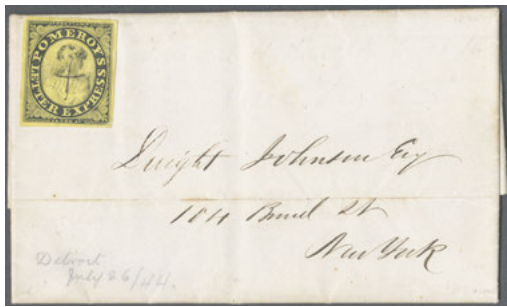 POMEROY'S
LETTER EXPRESS
Dwight Johnson Esq
104 Broad St
New York
Detroit
July 26/44.